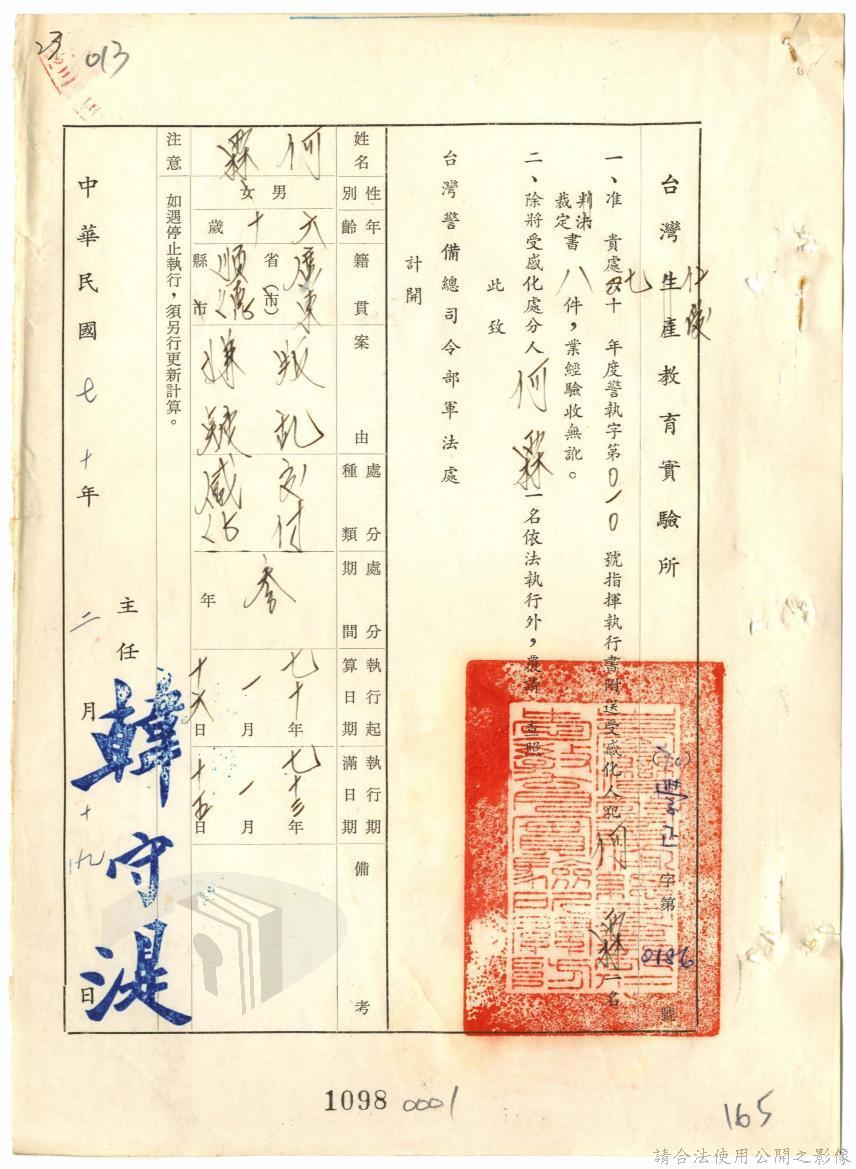 013
台灣生產教育實驗所
仁俊
(70)
字第
0186
號
一、准 貴處七十 年度警執字第010號指揮執行書附送受感化人犯何霖一名
判決
裁定書八件，業經驗收無訛。
二、除將受感化處分人何霖一名依法執行外，覆請 查照
此致
台灣警備總司令部軍法處
計開
姓名
何霖
性別
男
女
年齡
六十歲
籍貫
廣東省(市)
順德縣市
案由
叛亂
嫌疑
處分種類
交付
感化
處分期間
參年
執行起算日期
七十年
一月
十六日
執行期滿日期
七十三年
一月
十五日
備考
注意 如遇停止執行，須另行更新計算。
中華民國七十年二月十九日
主任
韓守湜
1098 0001
165
請合法使用公開之影像